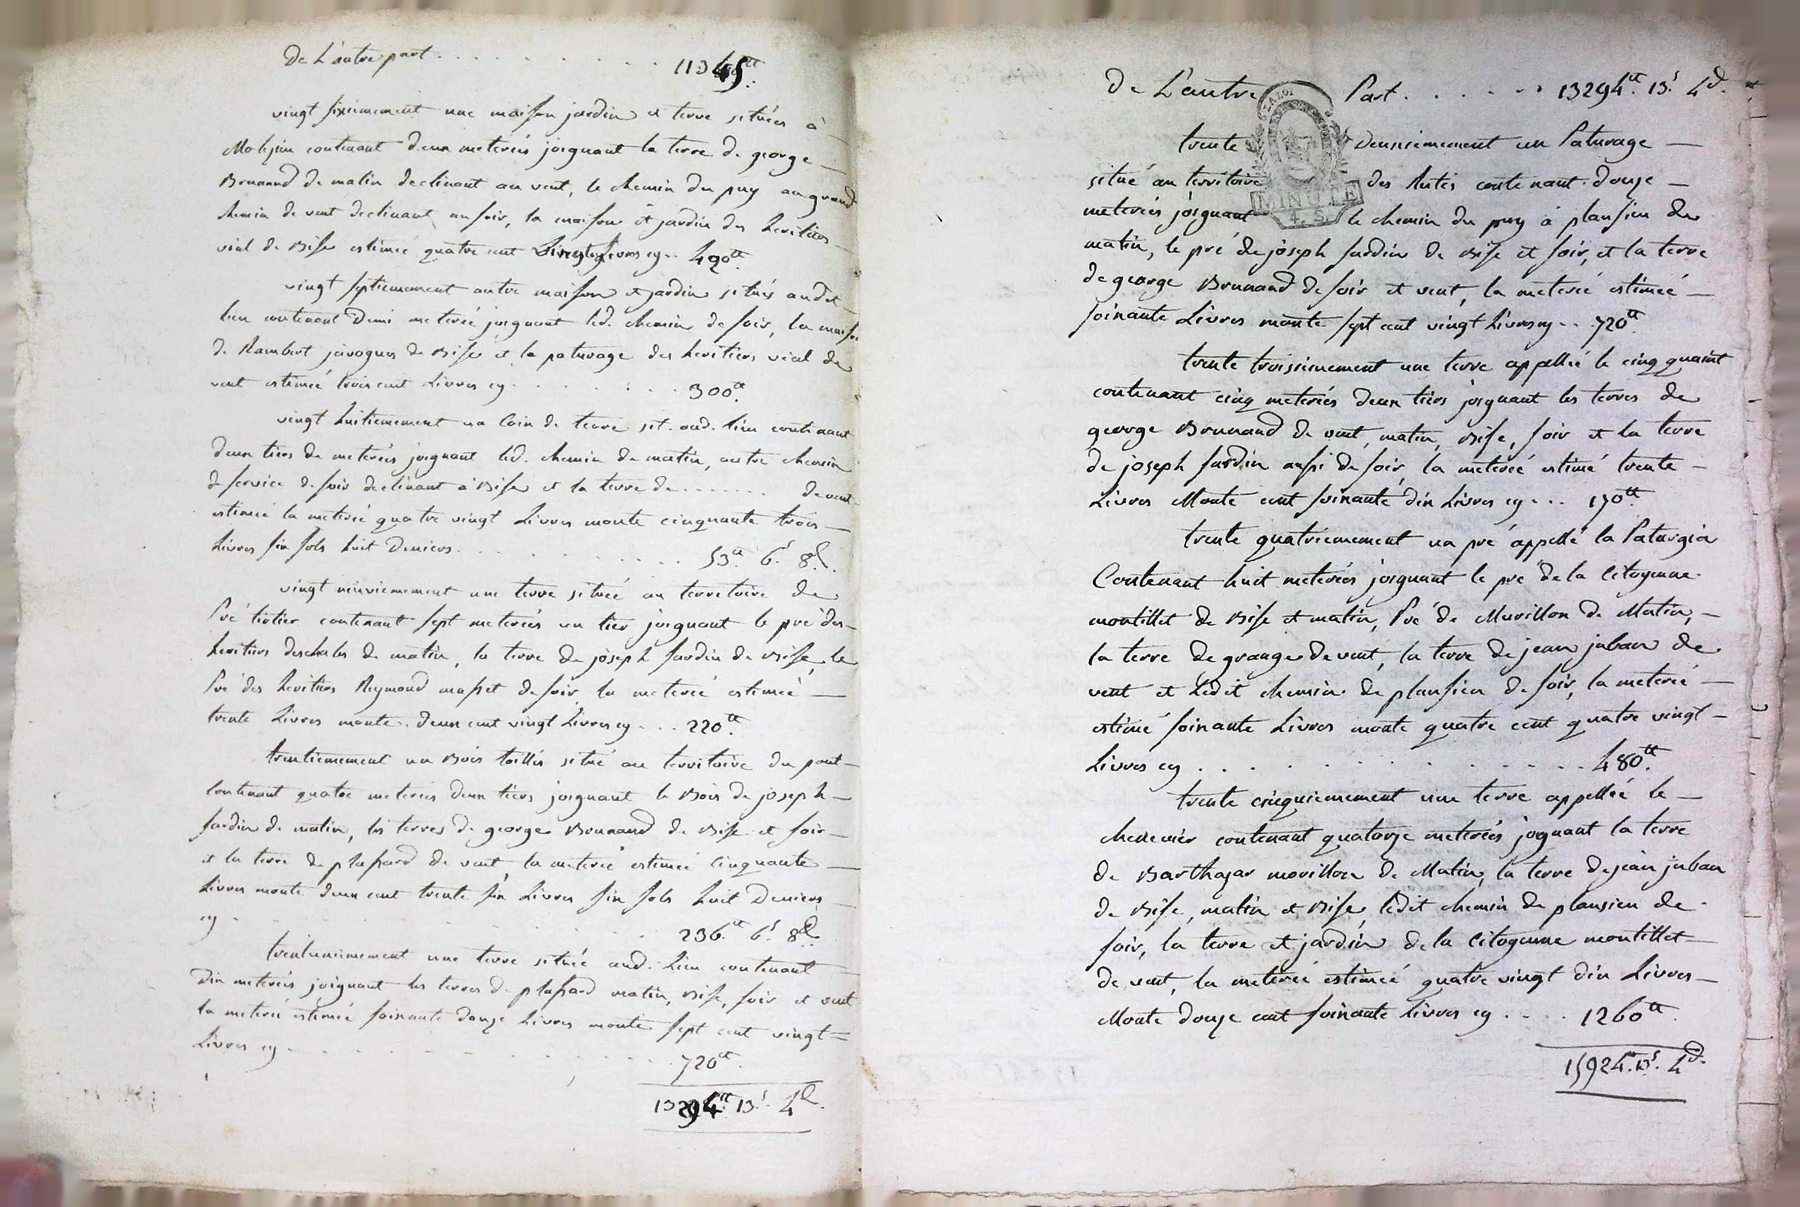 de L'autre part . . . . . . . . . . 11345tt.
vingt sixiemement une maison jardin et terre situées à
contenant deux meterées joignant la terre de george
Brunand de matin declinant au vent, le chemin du puy au grand
chemin de vent declinant au soir, la maison et jardin des heritiers
vial de Bise estimée quatre cent Livres cy . . 490tt.
vingt septiemement autre maison et jardin situés audit
lieu contenant Demi meterée joignant led. chemin de soir, la maison
de Rambert javogues de Bise et la paturage des heritiers vial de
vent estimée trois cent Livres cy . . . . . . . 300tt.
vingt huitiemement un Coin de terre sit. aud. lieu contenant
deux tiers de meterées joignant led. chemin de matin, autre chemin
de service de soir declinant à Bise et la terre de . . . . . . . de vent
estimée la meterée quatre vingt Livres monte cinquante trois
Livres six sols huit Deniers. . . . . . . . . . 53tt. 6s. 8d.
vingt neuviemement une terre située au territoire de
Pré contenant sept meterées un tier joignant le pré des
heritiers de matin, la terre de joseph Jardin de Bise, le
Pré des heritiers Reymond masset de soir, la meterée estimée
trente Livres monte deux cent vingt Livres cy . . . 220tt.
trentiemement un Bois taillis situé au territoire du pont
Contenant quatre meterées deux tiers joignant le Bois de joseph
Jardin de matin, les terres de george Brunand de Bise et soir
et la terre de plassard de vent la meterée estimée Cinquante
Livres monte deux cent trente six Livres six sols huit Deniers
cy . . . . . . . . . . 236tt. 6s. 8d.
trentunimement une terre située aud. Lieu contenant
dix meterées joignant les terres de plassard matin, Bise, soir et vent
la meterée estimée soixante douze Livres monte sept cent vingt
Livres cy . . . . . . . . . . 720tt.
13294tt. 13s. 4d.
de L'autre Part . . . . . 13294tt. 13s. 4d.
LA LOI
MINUTE
4. S.
trente Deuxiemement un Paturage
situé au territoire des contenant douze
meterées joignant le chemin du puy à plansieu de
matin, le pré de joseph Jardin de Bise et soir, et la terre
de george Brunand de soir et vent, la meterée estimée
soixante Livres monte sept cent vingt Livres cy . . 720tt.
trente troisiemement une terre appellée le cinq quaint
contenant cinq meterées deux tiers joignant les terres de
george Brunand de vent, matin, Bise, soir et la terre
de joseph Jardin aussi de soir, la meterée estimé trente
Livres Monte cent soixante dix Livres cy . . . 170tt.
trente quatriemement un pré appellé la Paturgia
Contenant huit meterées joignant le pré de la Citoyenne
montillet de Bise et matin, Pré de Murillon de Matin,
la terre de grange de vent, la terre de jean juban de
vent et Ledit chemin de plansieu de soir, la meterée
estimé soixante Livres monte quatre cent quatre vingt
Livres cy . . . . . . . . . . 480tt.
trente cinquiemement une terre appellée le
contenant quatorze meterées joignant la terre
de Barthazar morillon de Matin, la terre de jean juban
de Bise, matin et Bise, ledit chemin de plansieu de
soir, la terre et jardin de la Citoyenne montillet
de vent, la meterée estimée quatre vingt dix Livres
Monte douze cent soixante Livres cy . . . . 1260tt.
15924tt. 13s. 4d.